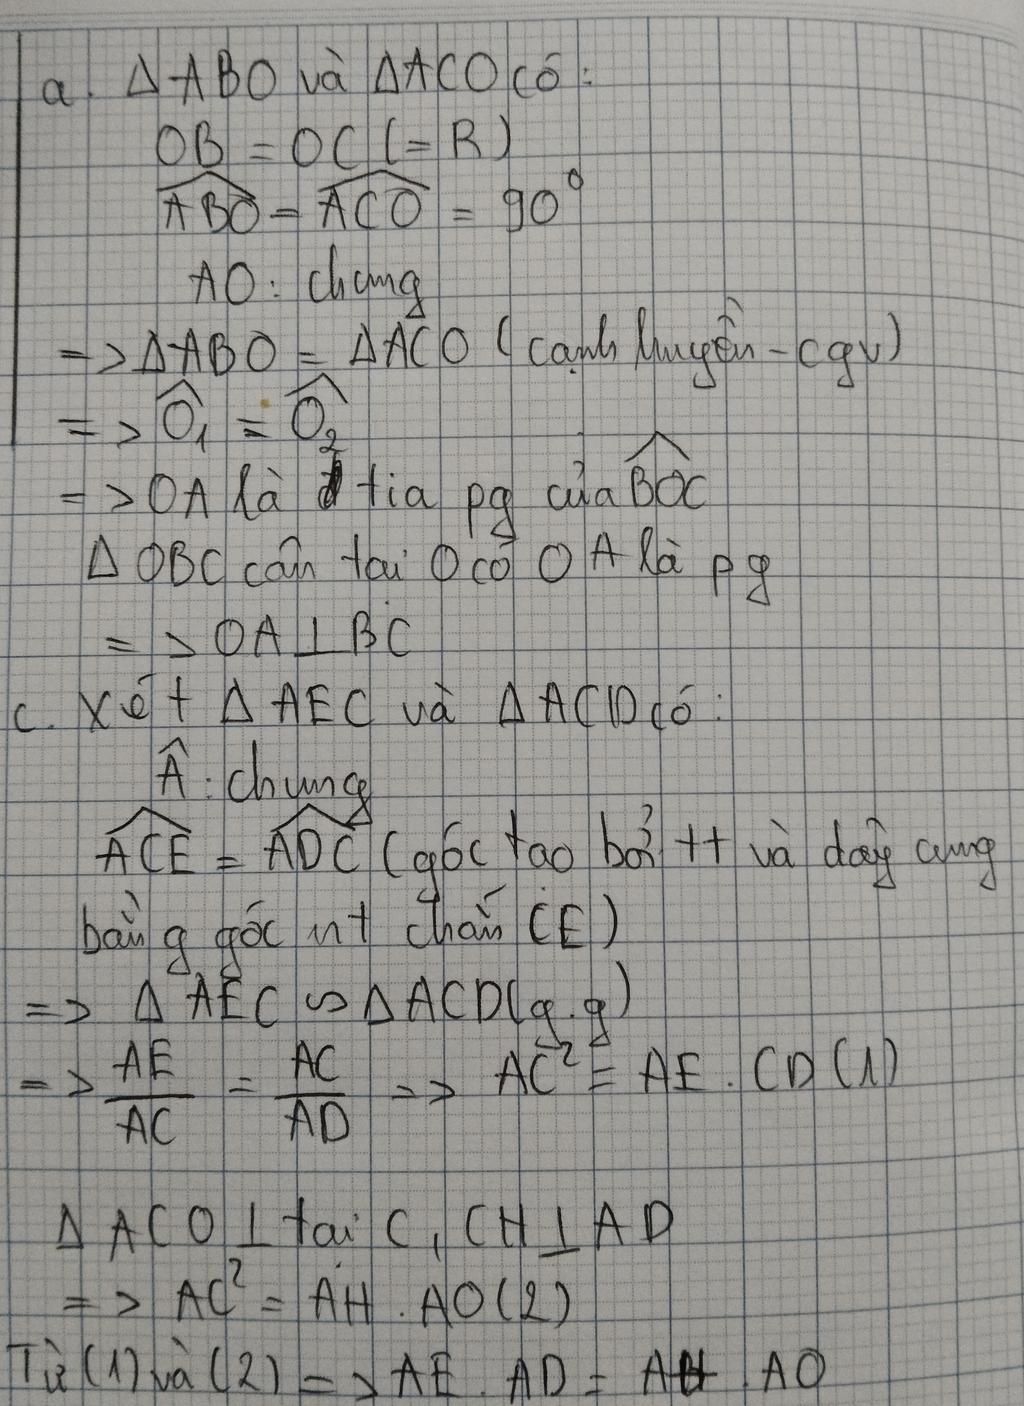 a. ΔABO và ΔACO có:
OB = OC (= R)
\widehat{ABO} = \widehat{ACO} = 90°
AO: chung
=> ΔABO = ΔACO (cạnh huyền - cgv)
=> \widehat{O_1} = \widehat{O_2}
=> OA là tia pg của \widehat{BOC}
Δ OBC cân tại O có OA là pg
=> OA ⊥ BC
c. Xét Δ AEC và Δ ACD có:
\widehat{A}: chung
\widehat{ACE} = \widehat{ADC} (góc tạo bởi tt và dây cung
bằng góc nt chắn CE)
=> Δ AEC ∽ Δ ACD (g.g)
=> \frac{AE}{AC} = \frac{AC}{AD} => AC² = AE . CD (1)
Δ ACO ⊥ tại C, CH ⊥ AD
=> AC² = AH . AO (2)
Từ (1) và (2) => AE . AD = AH . AO